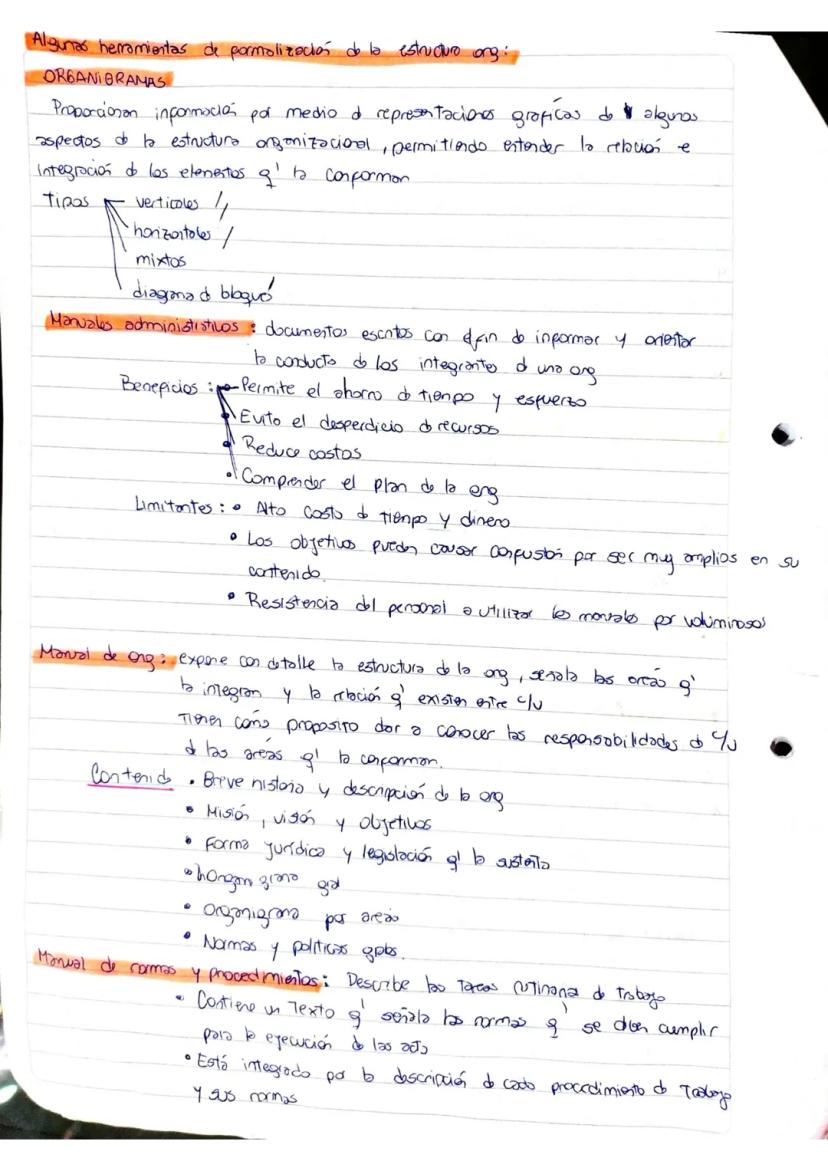 Algunas herramientas de formalización de la estructura org:
ORGANIGRAMAS
Proporcionan información por medio d representaciones gráficas de algunos
aspectos d la estructura organizacional, permitiendo entender la relación e
integración d los elementos q' la conforman
Tipos verticales
horizontales
mixtos
diagrama d bloque
Manuales administrativos: documentos escritos con el fin de informar y orientar
la conducta de los integrantes d una org
Beneficios: Permite el ahorro d tiempo y esfuerzo
Evita el desperdicio d recursos
Reduce costos
Comprender el plan de la org
Limitantes: • Alto costo d tiempo y dinero
• Los objetivos pueden causar confusión por ser muy amplios en su
contenido.
• Resistencia del personal a utilizar los manuales por voluminosos
Manual de org: expone con detalle la estructura de la org, señala las áreas q'
la integran y la relación q' existen entre c/u
Tienen como proposito dar a conocer las responsabilidades d c/u
d las areas q' la conforman.
Contenido • Breve historia y descripción de la org
• Misión, visión y objetivos
• Forma jurídica y legislación q' la sustenta
• Organigrama gral
• Organigrama por areas
• Normas y politicas grales.
Manual de normas y procedimientos: Describe las Tareas rutinarias de Trabajo
• Contiene un Texto q' señala las normas q' se deben cumplir
para la ejecución de las
• Está integrado por la descripción d cada procedimiento de Trabajo
y sus normas